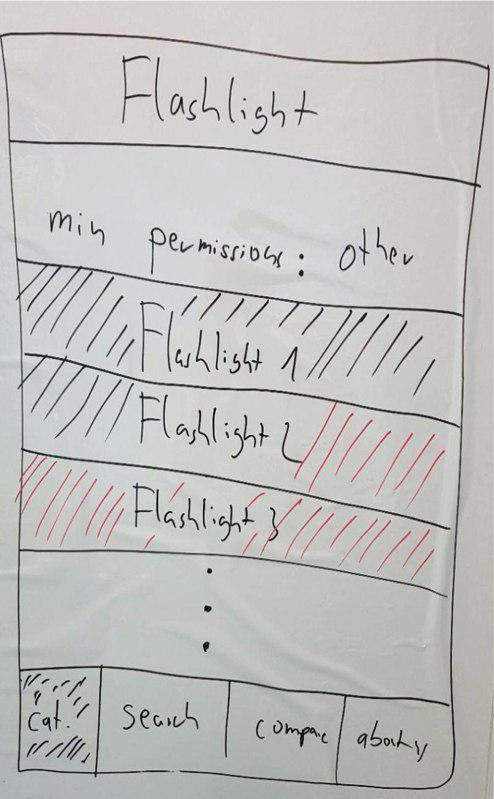 Flashlight
min permissions: other
Flashlight 1
Flashlight 2
Flashlight 3
cat. search compare